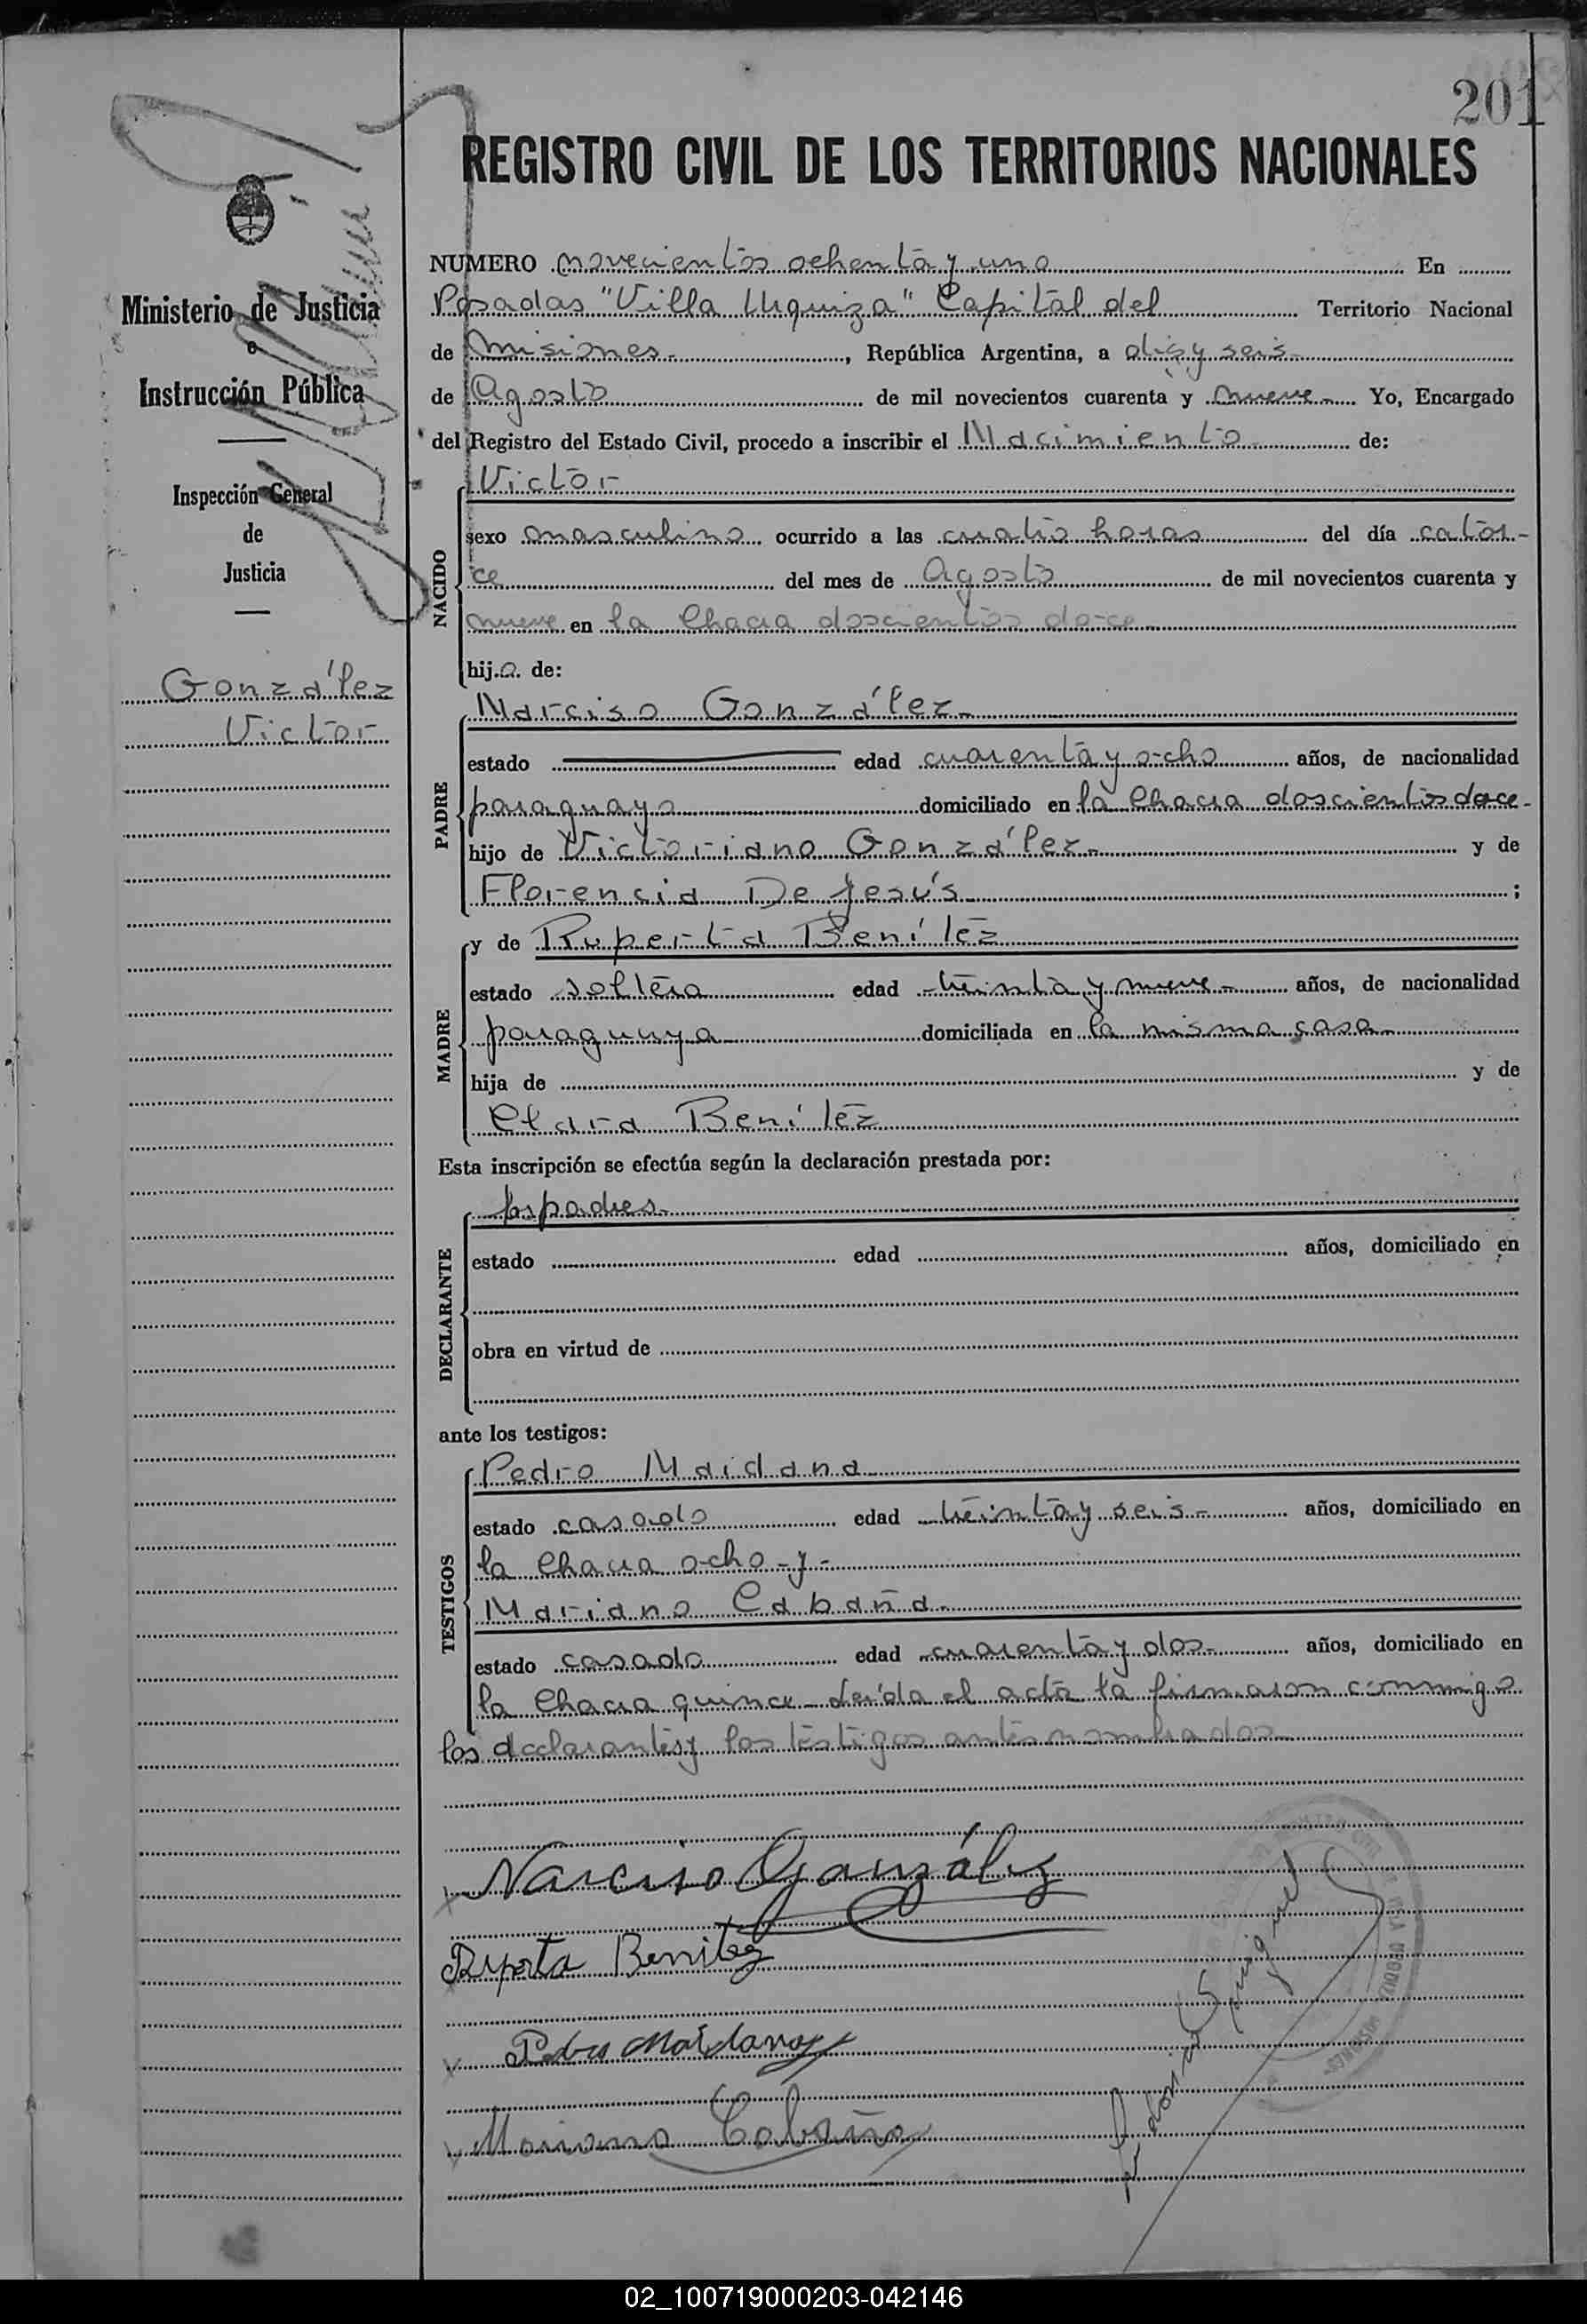 201
REGISTRO CIVIL DE LOS TERRITORIOS NACIONALES
Ministerio de Justicia
e
Instrucción Pública
Inspección General
de
Justicia
González
Victor
NUMERO novecientos ochenta y uno En
Posadas "Villa Urquiza" Capital del Territorio Nacional
de Misiones, República Argentina, a diez y seis
de Agosto de mil novecientos cuarenta y nueve Yo, Encargado
del Registro del Estado Civil, procedo a inscribir el Nacimiento de:
NACIDO
Victor
sexo masculino ocurrido a las cuatro horas del día cator-
ce del mes de Agosto de mil novecientos cuarenta y
nueve en la Chacra doscientos doce
hijo de:
PADRE
Narciso González
estado edad cuarenta y ocho años, de nacionalidad
paraguayo domiciliado en la Chacra doscientos doce
hijo de Victoriano González y de
Florencia De Jesús ;
MADRE
y de Ruperta Benítez
estado soltera edad treinta y nueve años, de nacionalidad
paraguaya domiciliada en la misma casa
hija de y de
Clara Benítez
Esta inscripción se efectúa según la declaración prestada por:
DECLARANTE
los padres
estado edad años, domiciliado en
obra en virtud de
ante los testigos:
TESTIGOS
Pedro Maidana
estado casado edad treinta y seis años, domiciliado en
la Chacra ocho - y -
Mariano Cabaña
estado casado edad cuarenta y dos años, domiciliado en
la Chacra quince - Leída el acta la firmaron conmigo
los declarantes y los testigos antes nombrados
Narciso González
Ruperta Benitez
Pedro Maidana
Mariano Cabaña
02_100719000203-042146